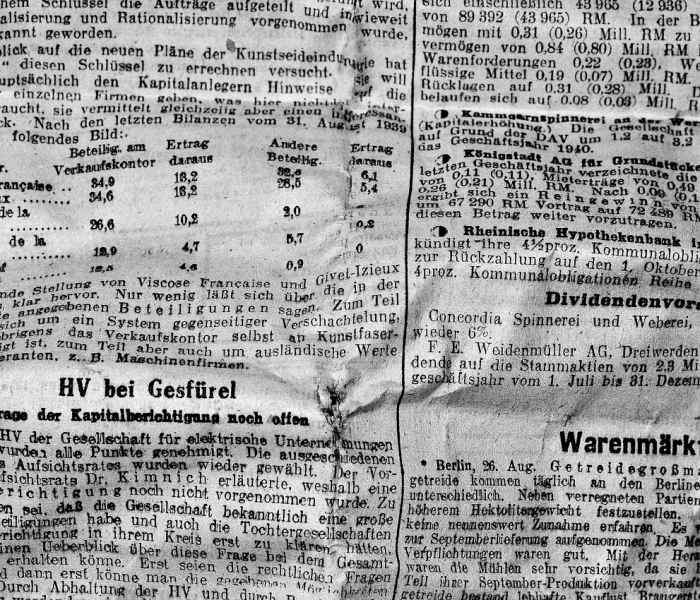 nem Schlüssel die Aufträge aufgeteilt und inwieweit
alisierung und Rationalisierung vorgenommen wurde,
kannt geworden.
lick auf die neuen Pläne der Kunstseideindustrie hat
" diesen Schlüssel zu errechnen versucht. Sie will
uptsächlich den Kapitalanlegern Hinweise auf die
einzelnen Firmen geben, was hier nicht
aucht, sie vermittelt gleichzeitig aber einen interessan-
ck. Nach den letzten Bilanzen vom 31. August 1939
folgendes Bild:
Beteilig. am Ertrag Andere Ertrag
Verkaufskontor daraus Beteilig. daraus
rançaise .. 34,9 13,2 32,6 6,1
ux. ... 34,6 13,2 28,5 5,4
de la
26,6 10,2 2,0 0,2
de la
12,9 4,7 5,7 0
12,5 4,6 0,9
nde Stellung von Viscose Francaise und Givet-Izieux
klar hervor. Nur wenig läßt sich über die in der
e angegebenen Beteiligungen sagen. Zum Teil
sich um ein System gegenseitiger Verschachtelung,
brigens das Verkaufskontor selbst an Kunstfaser-
igt ist, zum Teil aber auch um ausländische Werte
eranten, z. B. Maschinenfirmen.
HV bei Gesfürel
rage der Kapitalberichtigung noch offen
HV der Gesellschaft für elektrische Unternehmungen
wurden alle Punkte genehmigt. Die ausgeschiedenen
s Aufsichtsrates wurden wieder gewählt. Der Vor-
fsichtsrats Dr. Kimnich erläuterte, weshalb eine
erichtigung noch nicht vorgenommen wurde. Zu
en sei, daß die Gesellschaft bekanntlich eine große
eiligungen habe und auch die Tochtergesellschaften
richtigung in ihrem Kreis erst zu klären hätten,
inen Ueberblick über diese Frage bei dem Gesamt-
erhalten könne. Erst seien die rechtlichen Fragen
d dann erst könne man die gegebenen Möglichkeiten
Durch Abhaltung der HV und durch
sich einschließlich 43 965 (12 936)
von 89 392 (43 965) RM. In der B
mögen mit 0,31 (0,26) Mill. RM zu
vermögen von 0,84 (0,80) Mill. RM
Warenforderungen 0,22 (0,23). We
flüssige Mittel 0,19 (0,07) Mill. RM.
Rücklagen auf 0,31 (0,28) Mill.
belaufen sich auf 0,08 (0,03) Mill.
Kammgarnspinnerei an der Wer
(Kapitalerhöhung.) Die Gesellschaft
auf Grund der DAV um 1,2 auf 3,2
das Geschäftsjahr 1940.
Königstadt AG für Grundstücke
letzten Geschäftsjahr verzeichnete die
von 0,11 (0,11), Mieterträge von 0,49
0,26 (0,21) Mill. RM. Nach 0,09 (0,1
ergibt sich ein Reingewinn von
um 67 290 RM Vortrag auf 72 489 RM
diesen Betrag weiter vorzutragen.
Rheinische Hypothekenbank i
kündigt ihre 4½proz. Kommunalobli
zur Rückzahlung auf den 1. Oktober
4proz. Kommunalobligationen Reihe
Dividendenvor
Concordia Spinnerei und Weberei,
wieder 6%.
F. E. Weidenmüller AG, Dreiwerden
dende auf die Stammaktien von 2,3 Mi
geschäftsjahr vom 1. Juli bis 31. Dezem
Warenmärkt
* Berlin, 26. Aug. Getreidegroßm
getreide kommen täglich an den Berline
unterschiedlich. Neben verregneten Partien
höherem Hektolitergewicht festzustellen.
keine nennenswert Zunahme erfahren. Es
zur Septemberlieferung aufgenommen. Die Me
Verpflichtungen waren gut. Mit der Her
waren die Mühlen sehr vorsichtig, da sie
Teil ihrer September-Produktion vorverkauft
getreide bestand lebhafte Kauflust. Braugerst